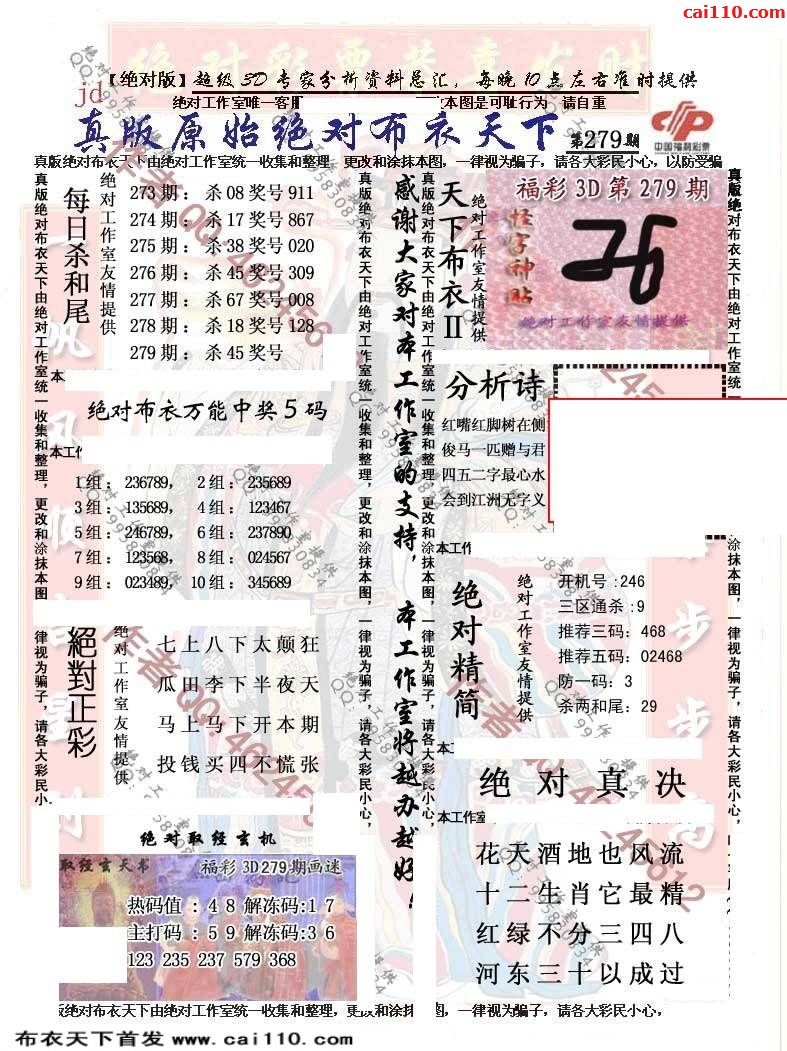 cai110.com
【绝对版】超级3D专家分析资料总汇，每晚10点左右准时提供
jd
绝对工作室唯一客服
本图是可耻行为 请自重
真版原始绝对布衣天下
第279期
中国福利彩票
真版绝对布衣天下由绝对工作室统一收集和整理，更改和涂抹本图，一律视为骗子，请各大彩民小心，以防受骗
真版绝对布衣天下由绝对工作室统一收集和整理，更改和涂抹本图，一律视为骗子，请各大彩民小心，
每日杀和尾
绝对工作室友情提供
273期：杀08奖号911
274期：杀17奖号867
275期：杀38奖号020
276期：杀45奖号309
277期：杀67奖号008
278期：杀18奖号128
279期：杀45奖号
本
绝对布衣万能中奖5码
本工作
1组：236789，2组：235689
3组：135689，4组：123467
5组：246789，6组：237890
7组：123568，8组：024567
9组：023489，10组：345689
絕對正彩
绝对工作室友情提供
七上八下太颠狂
瓜田李下半夜天
马上马下开本期
投钱买四不慌张
绝对取经玄机
取经玄天书
福彩3D279期画迷
热码值：48解冻码:17
主打码：59解冻码:36
123 235 237 579 368
真版绝对布衣天下由绝对工作室统一收集和整理，更改和涂抹本图，一律视为骗子，请各大彩民小心，
感谢大家对本工作室的支持，本工作室将越办越好！
真版绝对布衣天下由绝对工作室统一收集和整理，更改和涂抹本图，一律视为骗子，请各大彩民小心，
天下布衣II
绝对工作室友情提供
福彩3D第279期
怪字神贴
绝对工作室友情提供
分析诗
红嘴红脚树在侧
俊马一匹赠与君
四五二字最心水
会到江洲无字义
本工作
绝对精简
绝对工作室友情提供
开机号:246
三区通杀:9
推荐三码：468
推荐五码：02468
防一码：3
杀两和尾：29
本工
绝对真决
本工作室
花天酒地也风流
十二生肖它最精
红绿不分三四八
河东三十以成过
真版绝对布衣天下由绝对工作室统一
涂抹本图，一律视为骗子，请各大彩民小心，
版绝对布衣天下由绝对工作室统一收集和整理，更改和涂抹
图，一律视为骗子，请各大彩民小心，
布衣天下首发 www.cai110.com